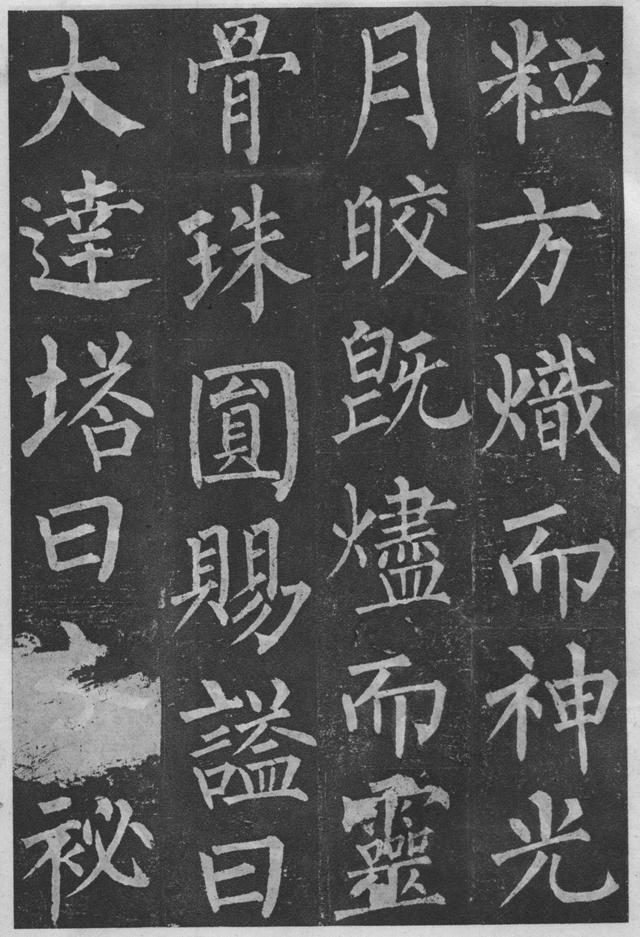 粒方熾而神光
月皎既燼而靈
骨珠圓賜謚曰
大達塔曰
袐